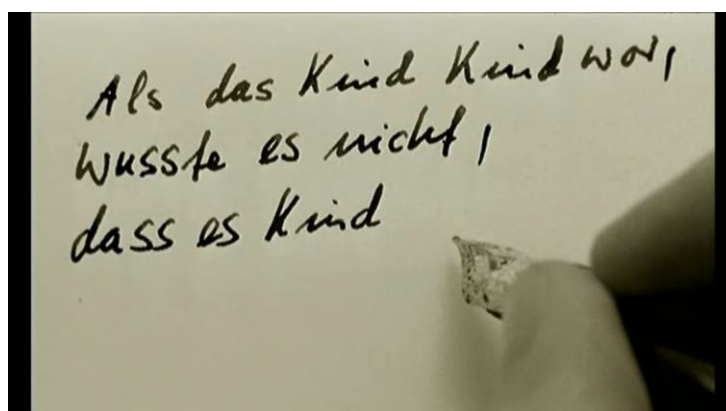 Als das Kind Kind war,
wusste es nicht,
dass es Kind